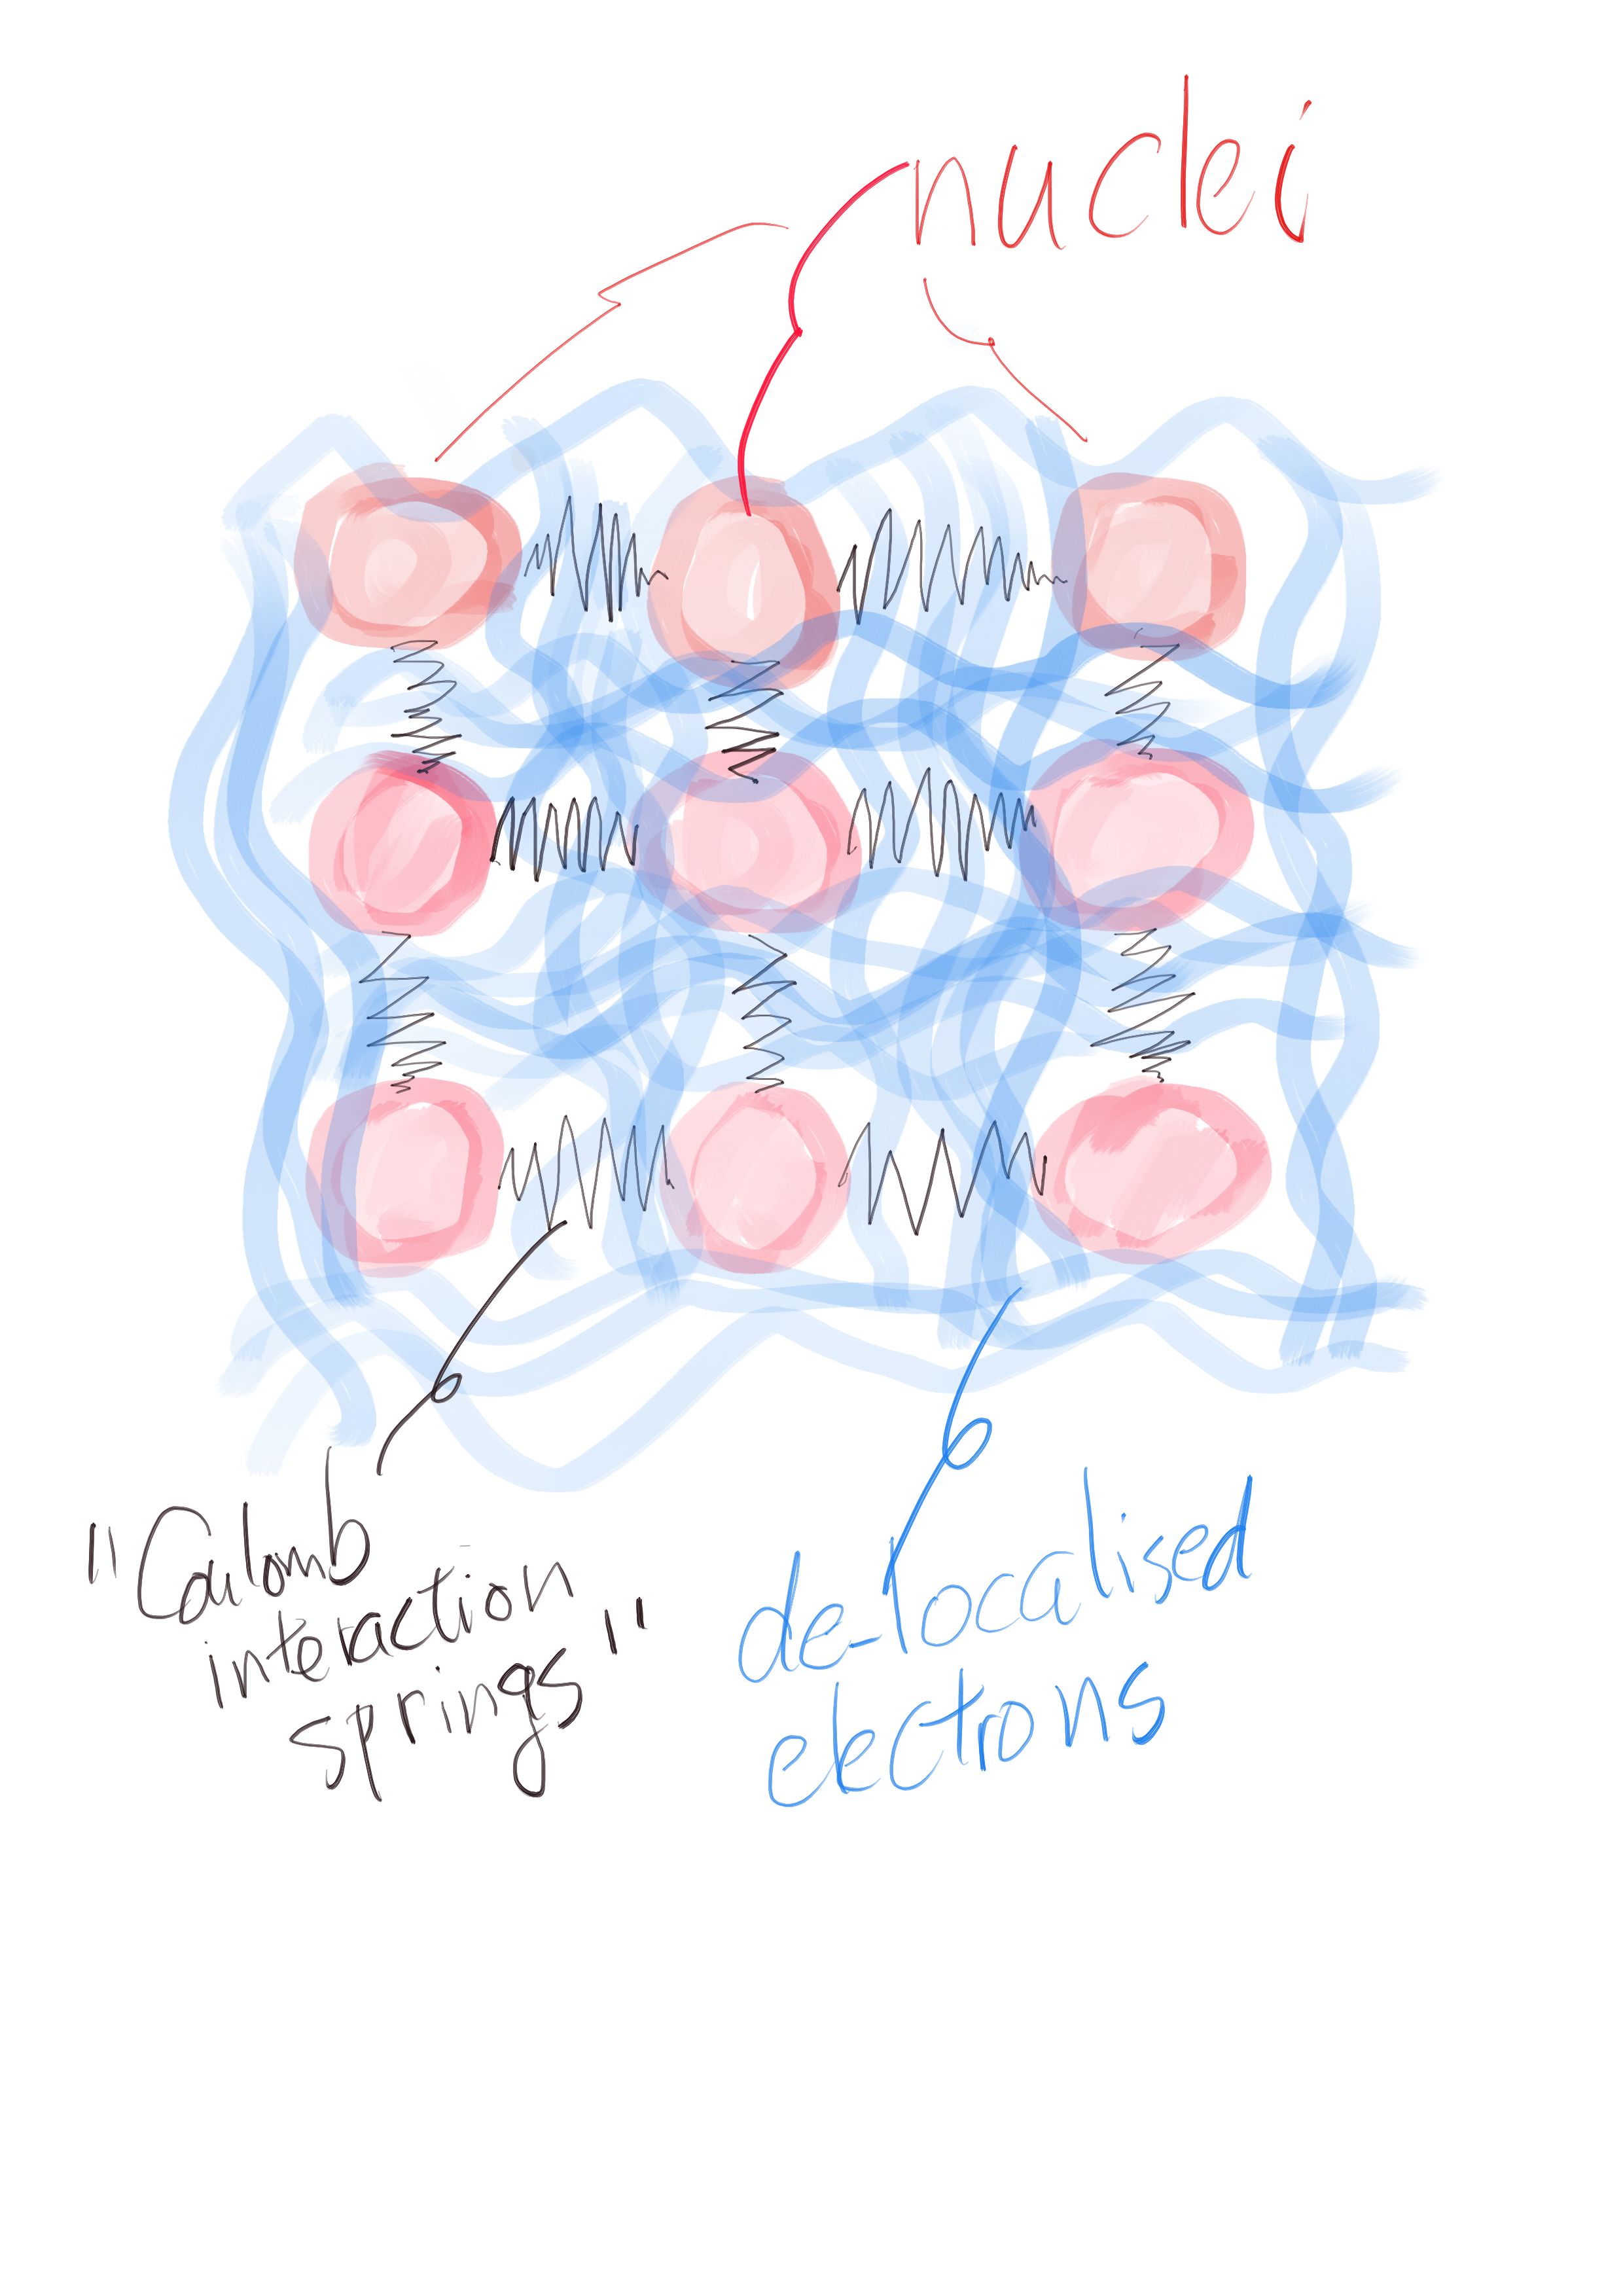 nuclei
"Coulomb
interaction
springs"
de-localised
electrons